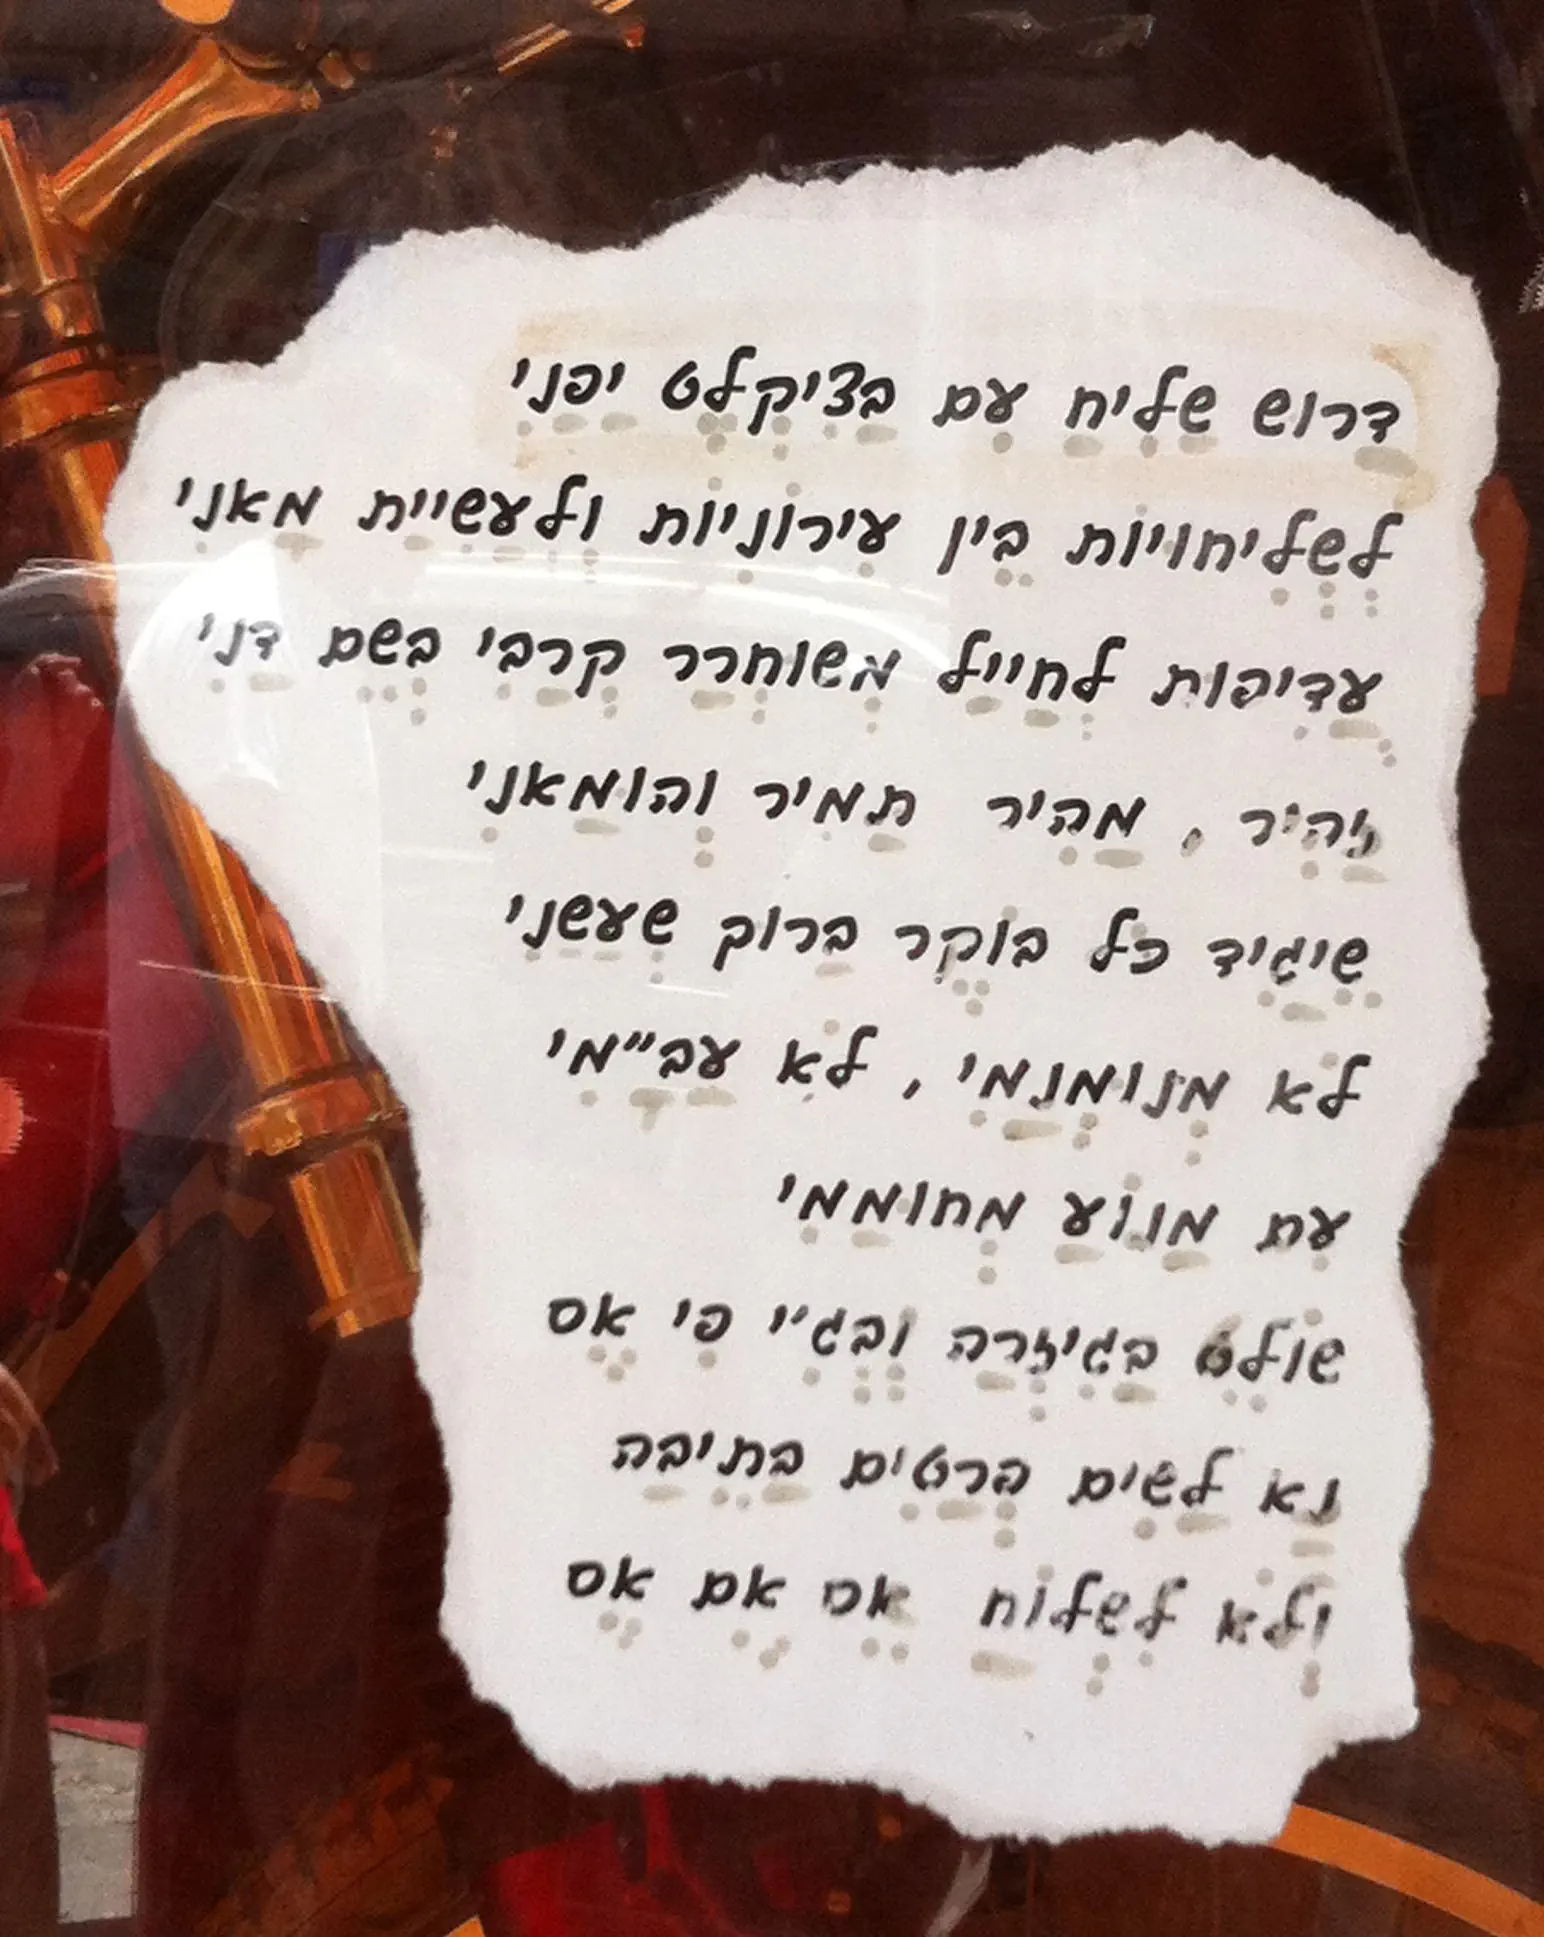 דַרוש שַלִיחַ עִם בַצִיקְלֶט יַפַנִי
לְשְלִיחויות בֵין עִירוֹנִיוֹת וְלְעַשִיַית מַאנִי
עֲדִיפות לְחַיַיל מְשוחְרַר קְרַבִי בְשֵם דַנִי
זַהִיר, מַהִיר תַמִיר וְהומַאנִי
שֶיַגִיד כֹל בוֹקֶר בַרוך שֶעַשַנִי
לֹא מְנומְנַמִי, לֹא עַבָ"מִי
עִת מַנוֹעַ מְחומַמִי
שולֵט בַגִיזְרַה וְבְגִ'י פִי אֶס
נַא לַשִים בְרַטִים בַתֵיבַה
וְלֹא לִשְלוֹחַ אֵס אֶם אֶס